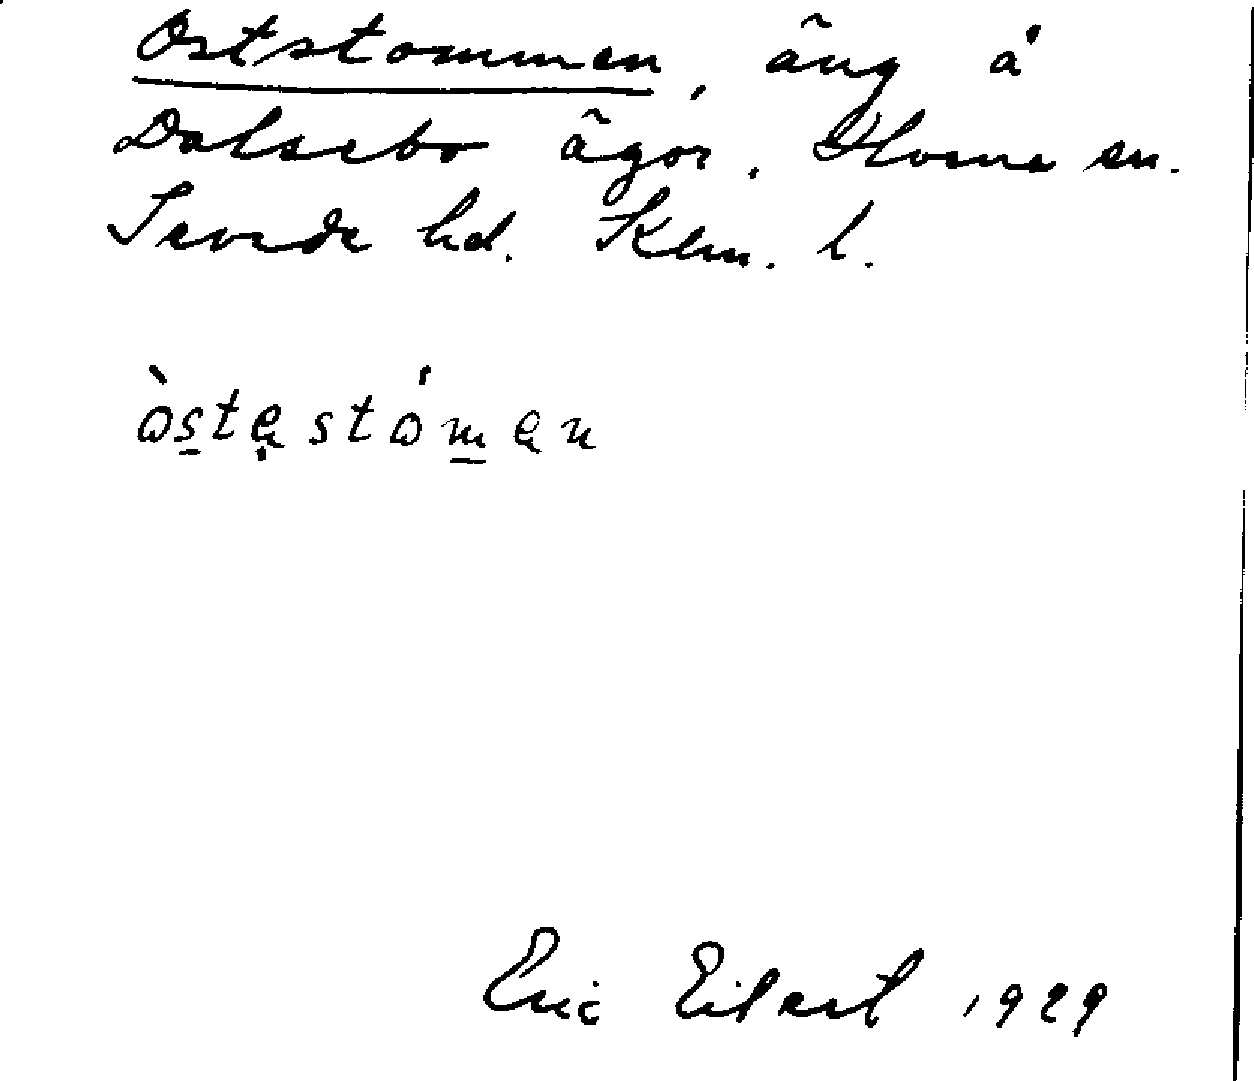 Oststommen, äng å
Dalsebo ägor. Flosne sn.
Sevede hd. Klm. l.
òstestómen
Eric Eilert 1929